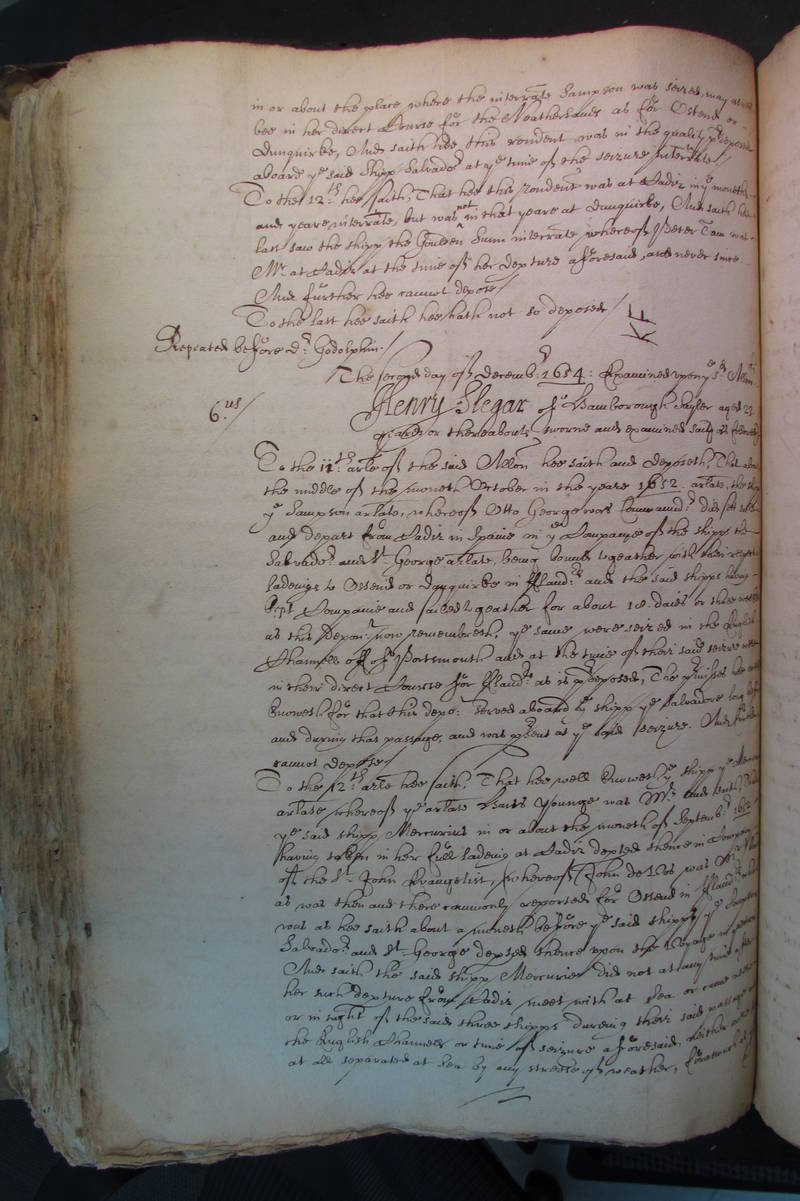 in or about the place where the interrate Sampson was seized, may as well
bee in her direct Course for the Neatherlands as for Ostend or
Dunquirke, And saith hee this rendent was in the quality predeposed
aboard ye said shipp Salvador at ye time of the seizure interrate /
To the 12:th hee saith, That hee this rendent was at Cadiz in ye moneths
and yeare interrate, but was not in that yeare at Dunquirke, And saith hee
last saw the shipp the Goulden Sunn interrate whereof Peter Tam was
Mr. at Cadiz at the time of her depture aforesaid, and never since.
And further hee cannot depose /
To the last hee saith hee hath not so deposed /
KF
Repeated before Dr. Godolphin /
The second day of Decembr 1654: Examined upon ye sd Allon
6.us /
Henry Slegar of Hamborough Sayler aged 22
yeares or thereabouts sworne and examined saith as followeth
To the 11th: arle of the said Allon hee saith and deposeth, That about
the middle of the moneth October in the yeare 1652 arlate, the shipp
ye Sampson arlate, whereof Otto George was Commandr did sett saile
and depart from Cadiz in Spaine in ye Companie of the shipps the
Salvador and St. George arlate, being bound togeather with their respective
ladeings to Ostend or Dunquirke in Flandrs and the said shipps haveing
kept Companie and sailed togeather for about 18. daies or three weekes
as this Deponent now remembreth, ye same were seized in the English
Channell off of Portsmouth and at the time of their said seizure were
in their direct Course for Flandrs as is predeposed, The premisses hee
knoweth for that this depot served aboard ye shipp ye Salvadore long before
and during that passage, and was present at ye said seizure. And further
cannot depose /
To the 12:th arle hee saith, That hee well knoweth ye shipp ye Mercurius
arlate whereof ye arlate Younge was Mr. and saith
ye said shipp Mercurius in or about the moneth of Septembr 1652
having taken in her full ladeing at Cadiz depted thence in Company
of the St. John Evangelist, (whereof John de Vos was Mr.)
as was then and there commonly reported for Ostend in Flandrs which
was as hee saith about a moneth before ye said shipps ye Sampson
Salvador and St. George depted thence upon the Voyage in question
And saith the said shipp Mercurius did not at any time after
her such depture from Cadiz meet with at Sea or come neere
or in sight of the said three shipps dureing their said passage
the English Channell or time of seizure aforesaid, neither were
at all separated at Sea by any stresse of weather, forasmuch as